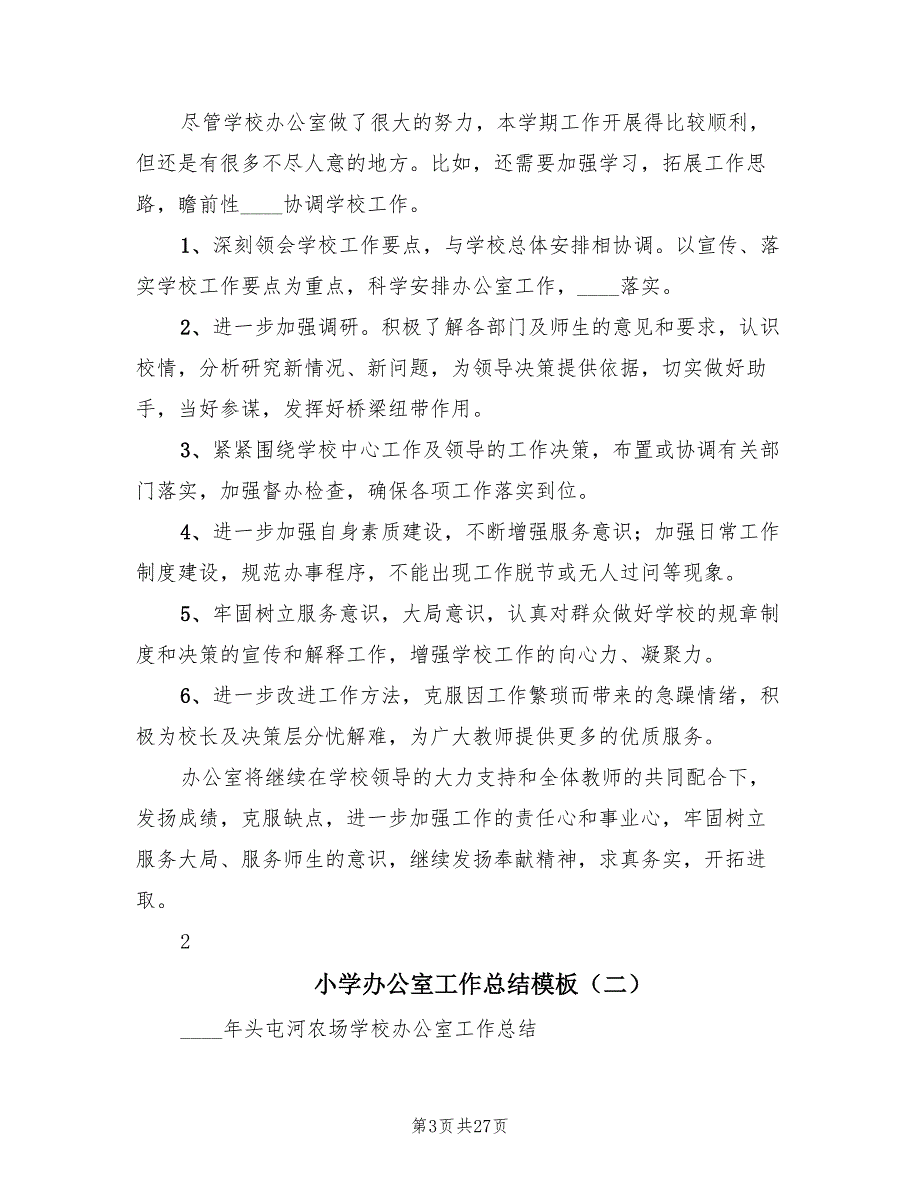 尽管学校办公室做了很大的努力，本学期工作开展得比较顺利，
但还是有很多不尽人意的地方。比如，还需要加强学习，拓展工作思
路，瞻前性____协调学校工作。
1、深刻领会学校工作要点，与学校总体安排相协调。以宣传、落
实学校工作要点为重点，科学安排办公室工作，____落实。
2、进一步加强调研。积极了解各部门及师生的意见和要求，认识
校情，分析研究新情况、新问题，为领导决策提供依据，切实做好助
手，当好参谋，发挥好桥梁纽带作用。
3、紧紧围绕学校中心工作及领导的工作决策，布置或协调有关部
门落实，加强督办检查，确保各项工作落实到位。
4、进一步加强自身素质建设，不断增强服务意识；加强日常工作
制度建设，规范办事程序，不能出现工作脱节或无人过问等现象。
5、牢固树立服务意识，大局意识，认真对群众做好学校的规章制
度和决策的宣传和解释工作，增强学校工作的向心力、凝聚力。
6、进一步改进工作方法，克服因工作繁琐而带来的急躁情绪，积
极为校长及决策层分忧解难，为广大教师提供更多的优质服务。
办公室将继续在学校领导的大力支持和全体教师的共同配合下，
发扬成绩，克服缺点，进一步加强工作的责任心和事业心，牢固树立
服务大局、服务师生的意识，继续发扬奉献精神，求真务实，开拓进
取。
2
小学办公室工作总结模板（二）
____年头屯河农场学校办公室工作总结
第3页共27页